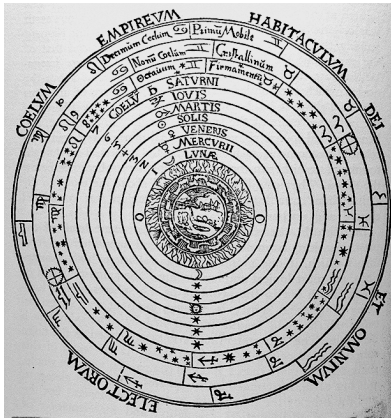 COELVM EMPIREVM HABITACVLVM DEI
ET OMNIVM ELECTORVM
Decimum Coelum Primũ Mobile
Nonũ Coelum Cristallinum
Octauum Firmamentũ
COELV SATVRNI
IOVIS
MARTIS
SOLIS
VENERIS
MERCVRII
LVNÆ